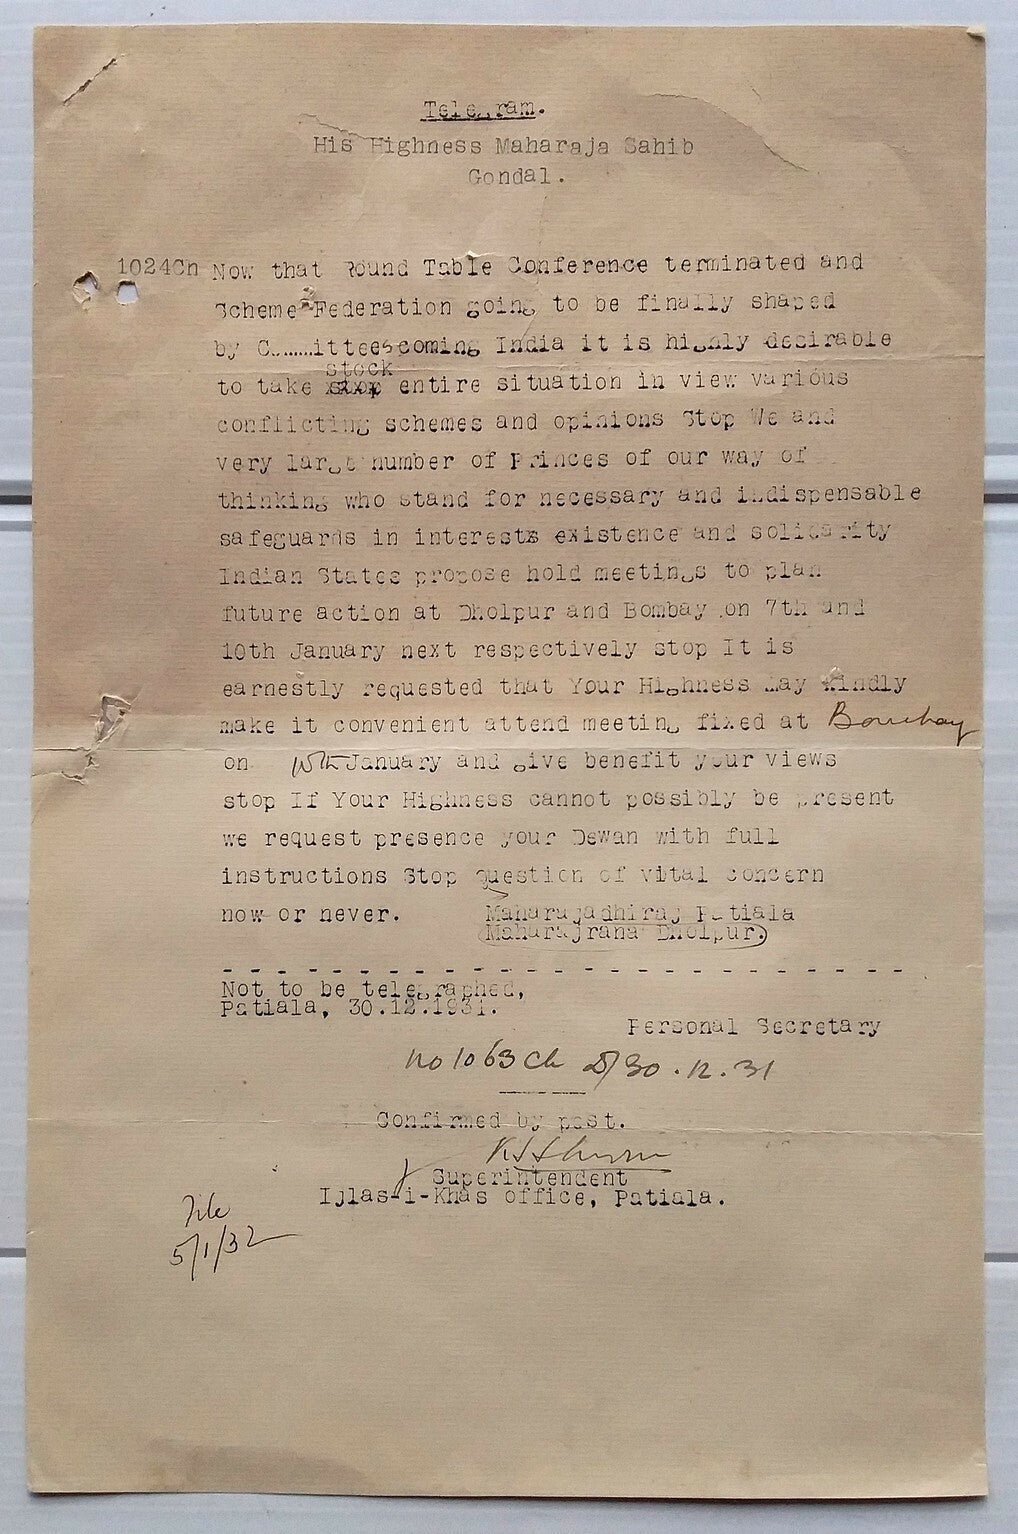 Telegram.
His Highness Maharaja Sahib
Gondal.
1024Ch Now that Round Table Conference terminated and
Scheme Federation going to be finally shaped
by C......ittees coming India it is highly desirable
stock
to take stop entire situation in view various
conflicting schemes and opinions Stop We and
very large number of Princes of our way of
thinking who stand for necessary and indispensable
safeguards in interests existence and solidarity
Indian States propose hold meetings to plan
future action at Dholpur and Bombay on 7th and
10th January next respectively stop It is
earnestly requested that Your Highness may kindly
make it convenient attend meeting fixed at Bombay
on January and give benefit your views
stop If Your Highness cannot possibly be present
we request presence your Dewan with full
instructions Stop Question of vital concern
now or never. Maharajadhiraj Patiala
Maharajrana Dholpur.)
- - - - - - - - - - - - - - - - - - - - - - - -
Not to be telegraphed,
Patiala, 30.12.1931.
Personal Secretary
No 1063 Ch D/30.12.31
Confirmed by post.
Superintendent
Ijlas-i-Khas office, Patiala.
File
5/1/32